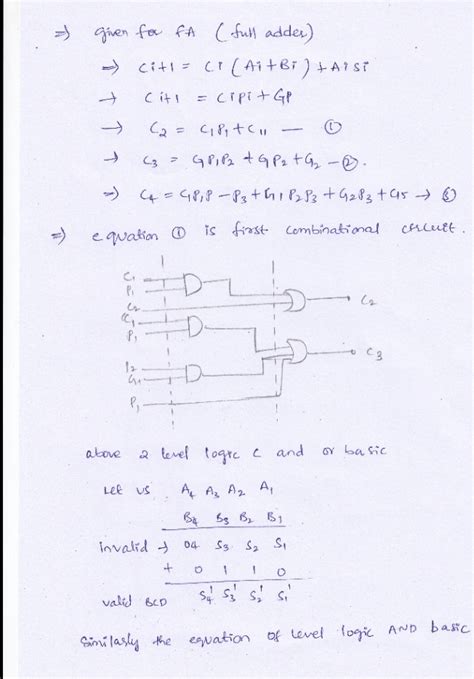 ⇒ given for FA (full adder)
⇒ Ci+1 = Ci (Ai+Bi) + AiSi
→ Ci+1 = CiPi + GP
→ C2 = C1P1 + C11 — ①
→ C3 = GP1P2 + GP2 + G2 — ②.
⇒ C4 = GP1P - P3 + G1P2P3 + G2P3 + G5 → ③
⇒ equation ① is first combinational circuit.
C1
P1
C2
C2
C1
P1
C3
P2
G1
P1
above 2 level logic C and or basic
Let us A4 A3 A2 A1
B4 B3 B2 B1
invalid → 04 S3 S2 S1
+ 0 1 1 0
valid BCD S4' S3' S2' S1'
Similarly the equation of level logic AND basic